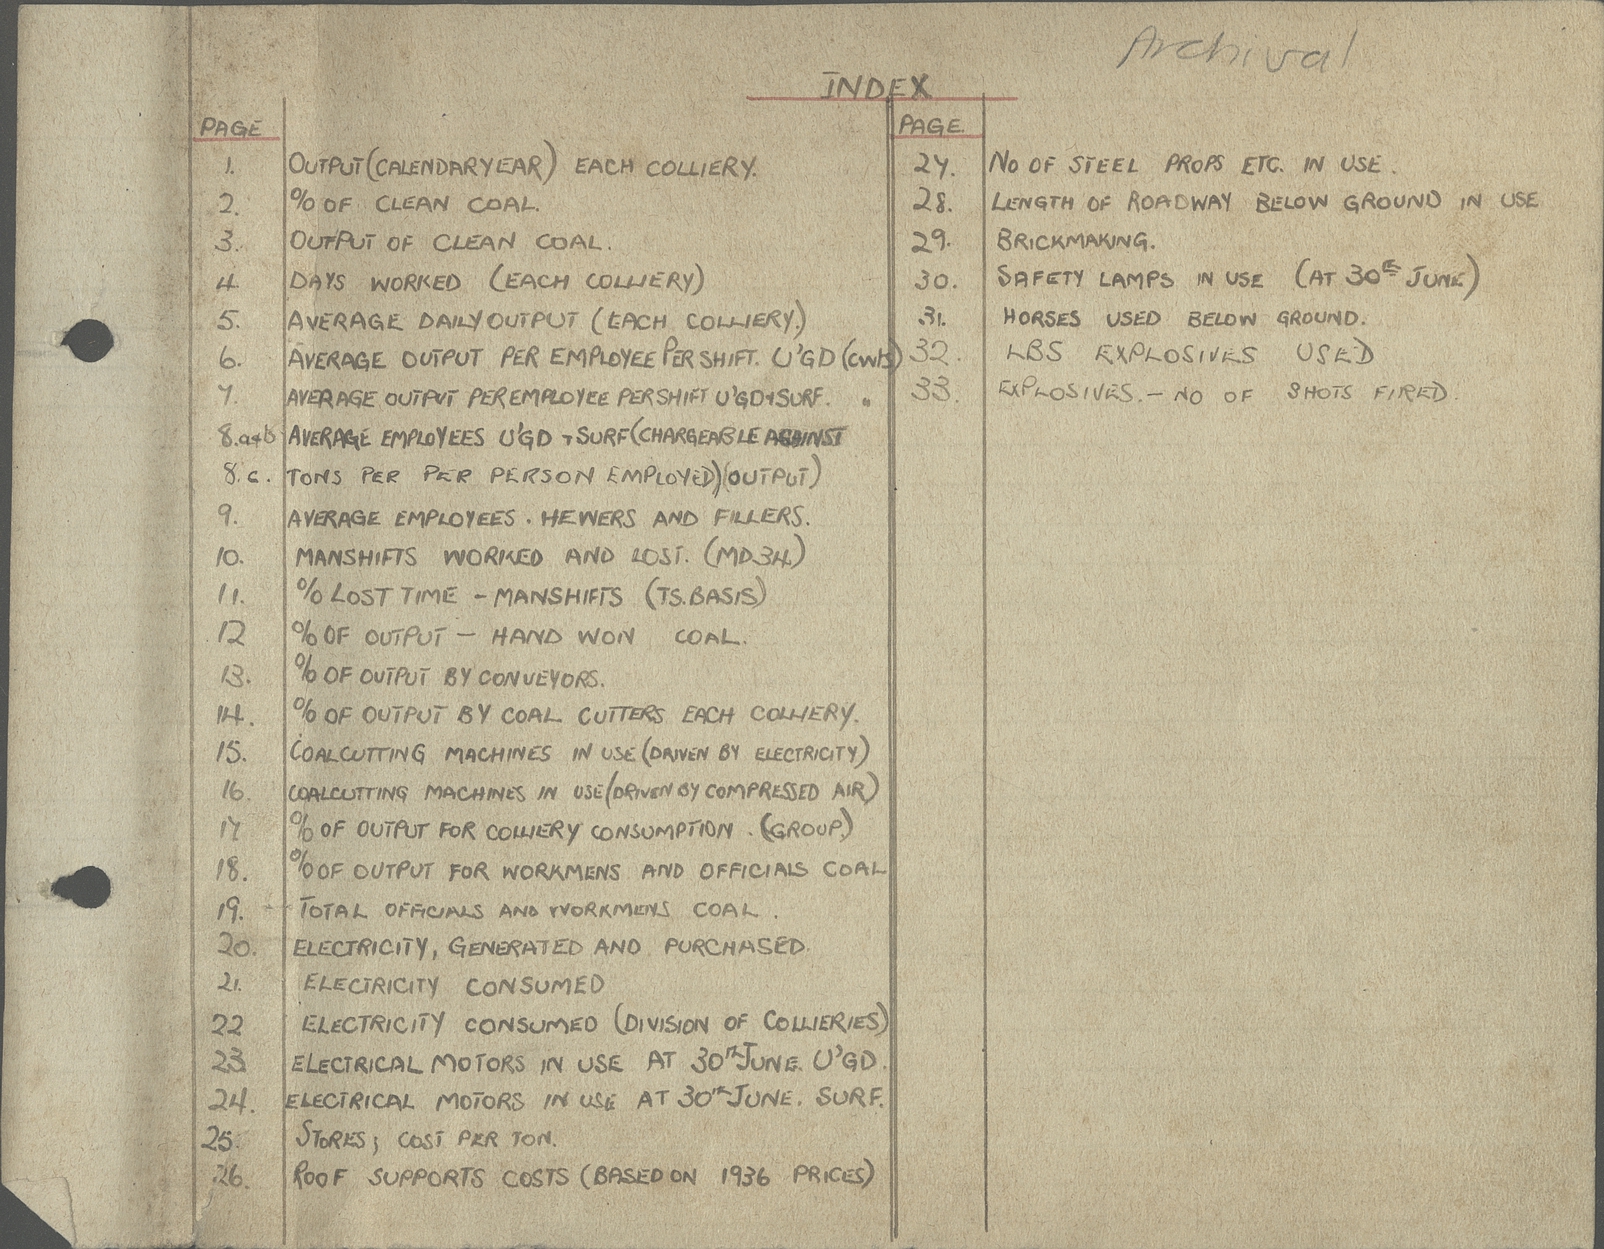 Archival
INDEX
PAGE
1. OUTPUT (CALENDAR YEAR) EACH COLLIERY.
2. % OF CLEAN COAL.
3. OUTPUT OF CLEAN COAL.
4. DAYS WORKED (EACH COLLIERY)
5. AVERAGE DAILY OUTPUT (EACH COLLIERY.)
6. AVERAGE OUTPUT PER EMPLOYEE PER SHIFT. U'GD (cwts)
7. AVERAGE OUTPUT PER EMPLOYEE PER SHIFT U'GD + SURF. "
8.a+b AVERAGE EMPLOYEES U'GD + SURF (CHARGEABLE AGAINST
8.c. TONS PER PER PERSON EMPLOYED) (OUTPUT)
9. AVERAGE EMPLOYEES. HEWERS AND FILLERS.
10. MANSHIFTS WORKED AND LOST. (MD.34)
11. % LOST TIME - MANSHIFTS (TS.BASIS)
12 % OF OUTPUT - HAND WON COAL.
13. % OF OUTPUT BY CONVEYORS.
14. % OF OUTPUT BY COAL CUTTERS EACH COLLIERY.
15. COALCUTTING MACHINES IN USE (DRIVEN BY ELECTRICITY)
16. COALCUTTING MACHINES IN USE (DRIVEN BY COMPRESSED AIR)
17 % OF OUTPUT FOR COLLIERY CONSUMPTION. (GROUP.)
18. % OF OUTPUT FOR WORKMENS AND OFFICIALS COAL
19. TOTAL OFFICIALS AND WORKMENS COAL.
20. ELECTRICITY, GENERATED AND PURCHASED.
21. ELECTRICITY CONSUMED
22 ELECTRICITY CONSUMED (DIVISION OF COLLIERIES)
23 ELECTRICAL MOTORS IN USE AT 30TH JUNE. U'GD.
24. ELECTRICAL MOTORS IN USE AT 30TH JUNE. SURF.
25. STORES; COST PER TON.
26. ROOF SUPPORTS COSTS (BASED ON 1936 PRICES)
PAGE.
27. NO OF STEEL PROPS ETC. IN USE.
28. LENGTH OF ROADWAY BELOW GROUND IN USE
29. BRICKMAKING.
30. SAFETY LAMPS IN USE (AT 30TH JUNE)
31. HORSES USED BELOW GROUND.
32. LBS EXPLOSIVES USED
33. EXPLOSIVES. - NO OF SHOTS FIRED.